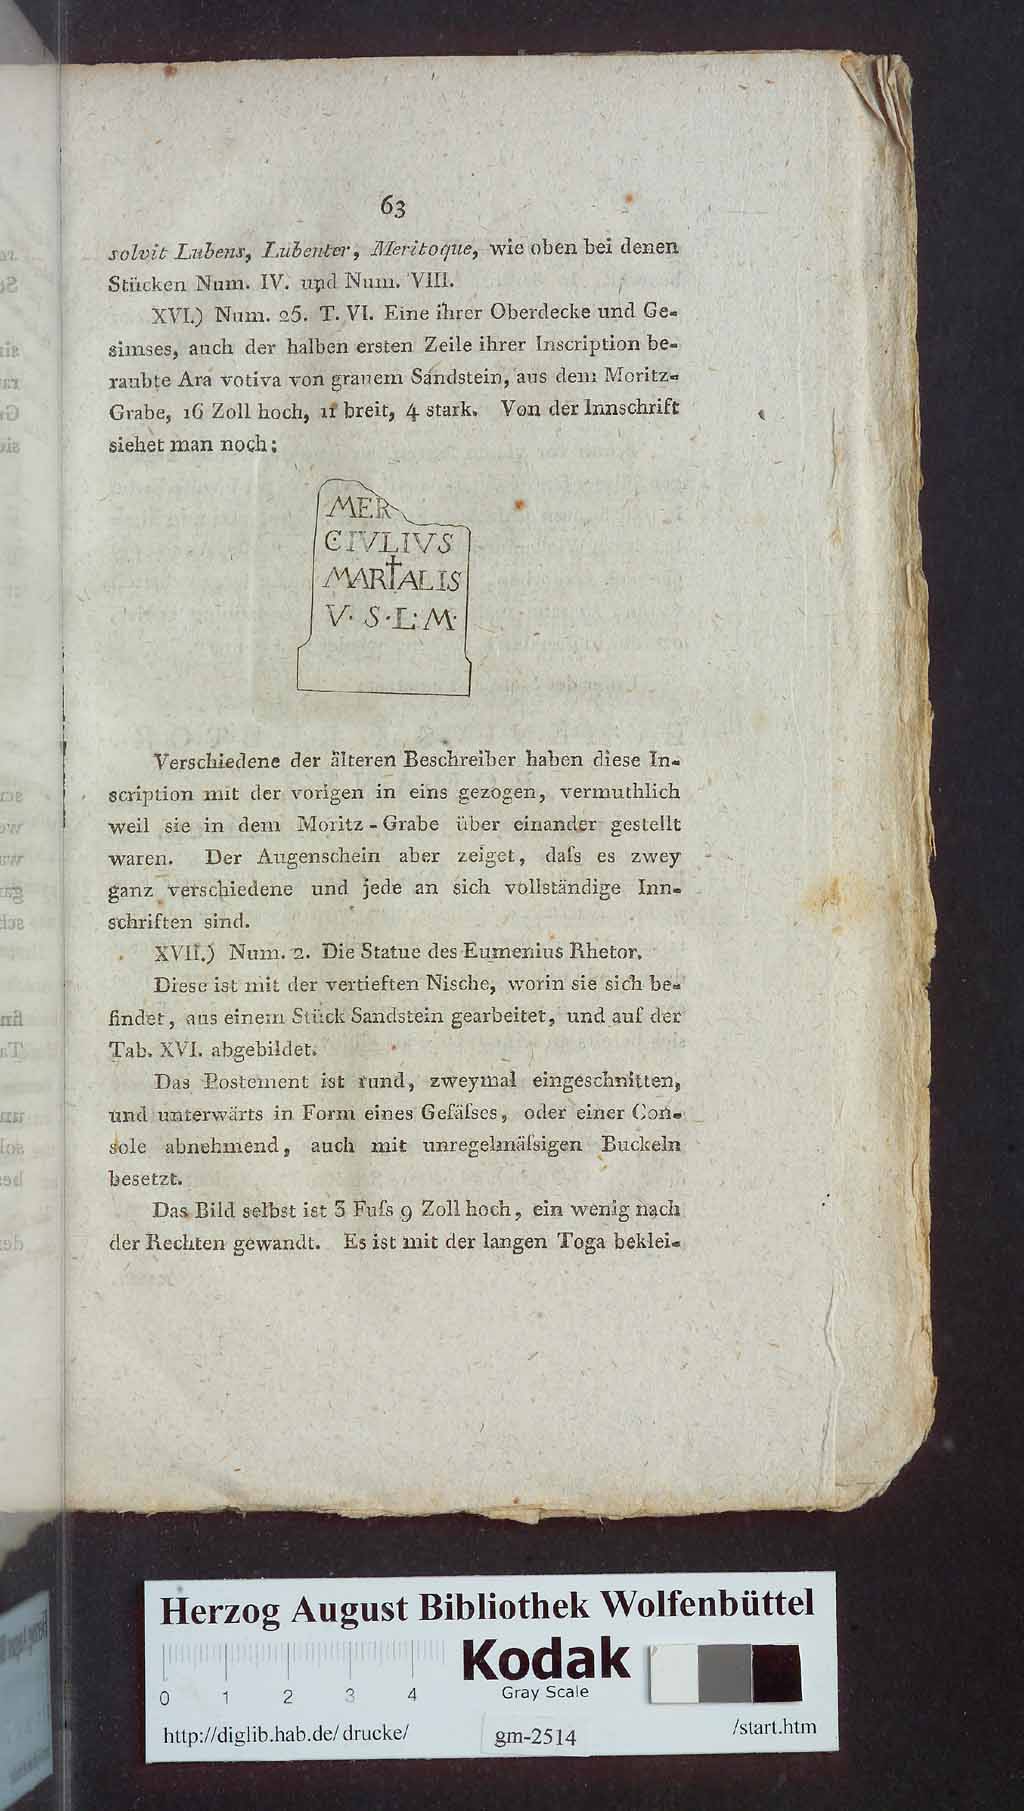 63
solvit Lubens, Lubenter, Meritoque, wie oben bei denen
Stücken Num. IV. und Num. VIII.
XVI.) Num. 25. T. VI. Eine ihrer Oberdecke und Ge-
simses, auch der halben ersten Zeile ihrer Inscription be-
raubte Ara votiva von grauem Sandstein, aus dem Moritz-
Grabe, 16 Zoll hoch, 11 breit, 4 stark. Von der Innschrift
siehet man noch:
MER
CIVLIVS
MARTALIS
V. S. L. M.
Verschiedene der älteren Beschreiber haben diese In-
scription mit der vorigen in eins gezogen, vermuthlich
weil sie in dem Moritz-Grabe über einander gestellt
waren. Der Augenschein aber zeiget, daſs es zwey
ganz verschiedene und jede an sich vollständige Inn-
schriften sind.
XVII.) Num. 2. Die Statue des Eumenius Rhetor.
Diese ist mit der vertieften Nische, worin sie sich be-
findet, aus einem Stück Sandstein gearbeitet, und auf der
Tab. XVI. abgebildet.
Das Postement ist rund, zweymal eingeschnitten,
und unterwärts in Form eines Gefäſses, oder einer Con-
sole abnehmend, auch mit unregelmäſsigen Buckeln
besetzt.
Das Bild selbst ist 3 Fuſs 9 Zoll hoch, ein wenig nach
der Rechten gewandt. Es ist mit der langen Toga beklei-
Herzog August Bibliothek Wolfenbüttel
Kodak
Gray Scale
0 1 2 3 4
http://diglib.hab.de/drucke/ gm-2514 /start.htm